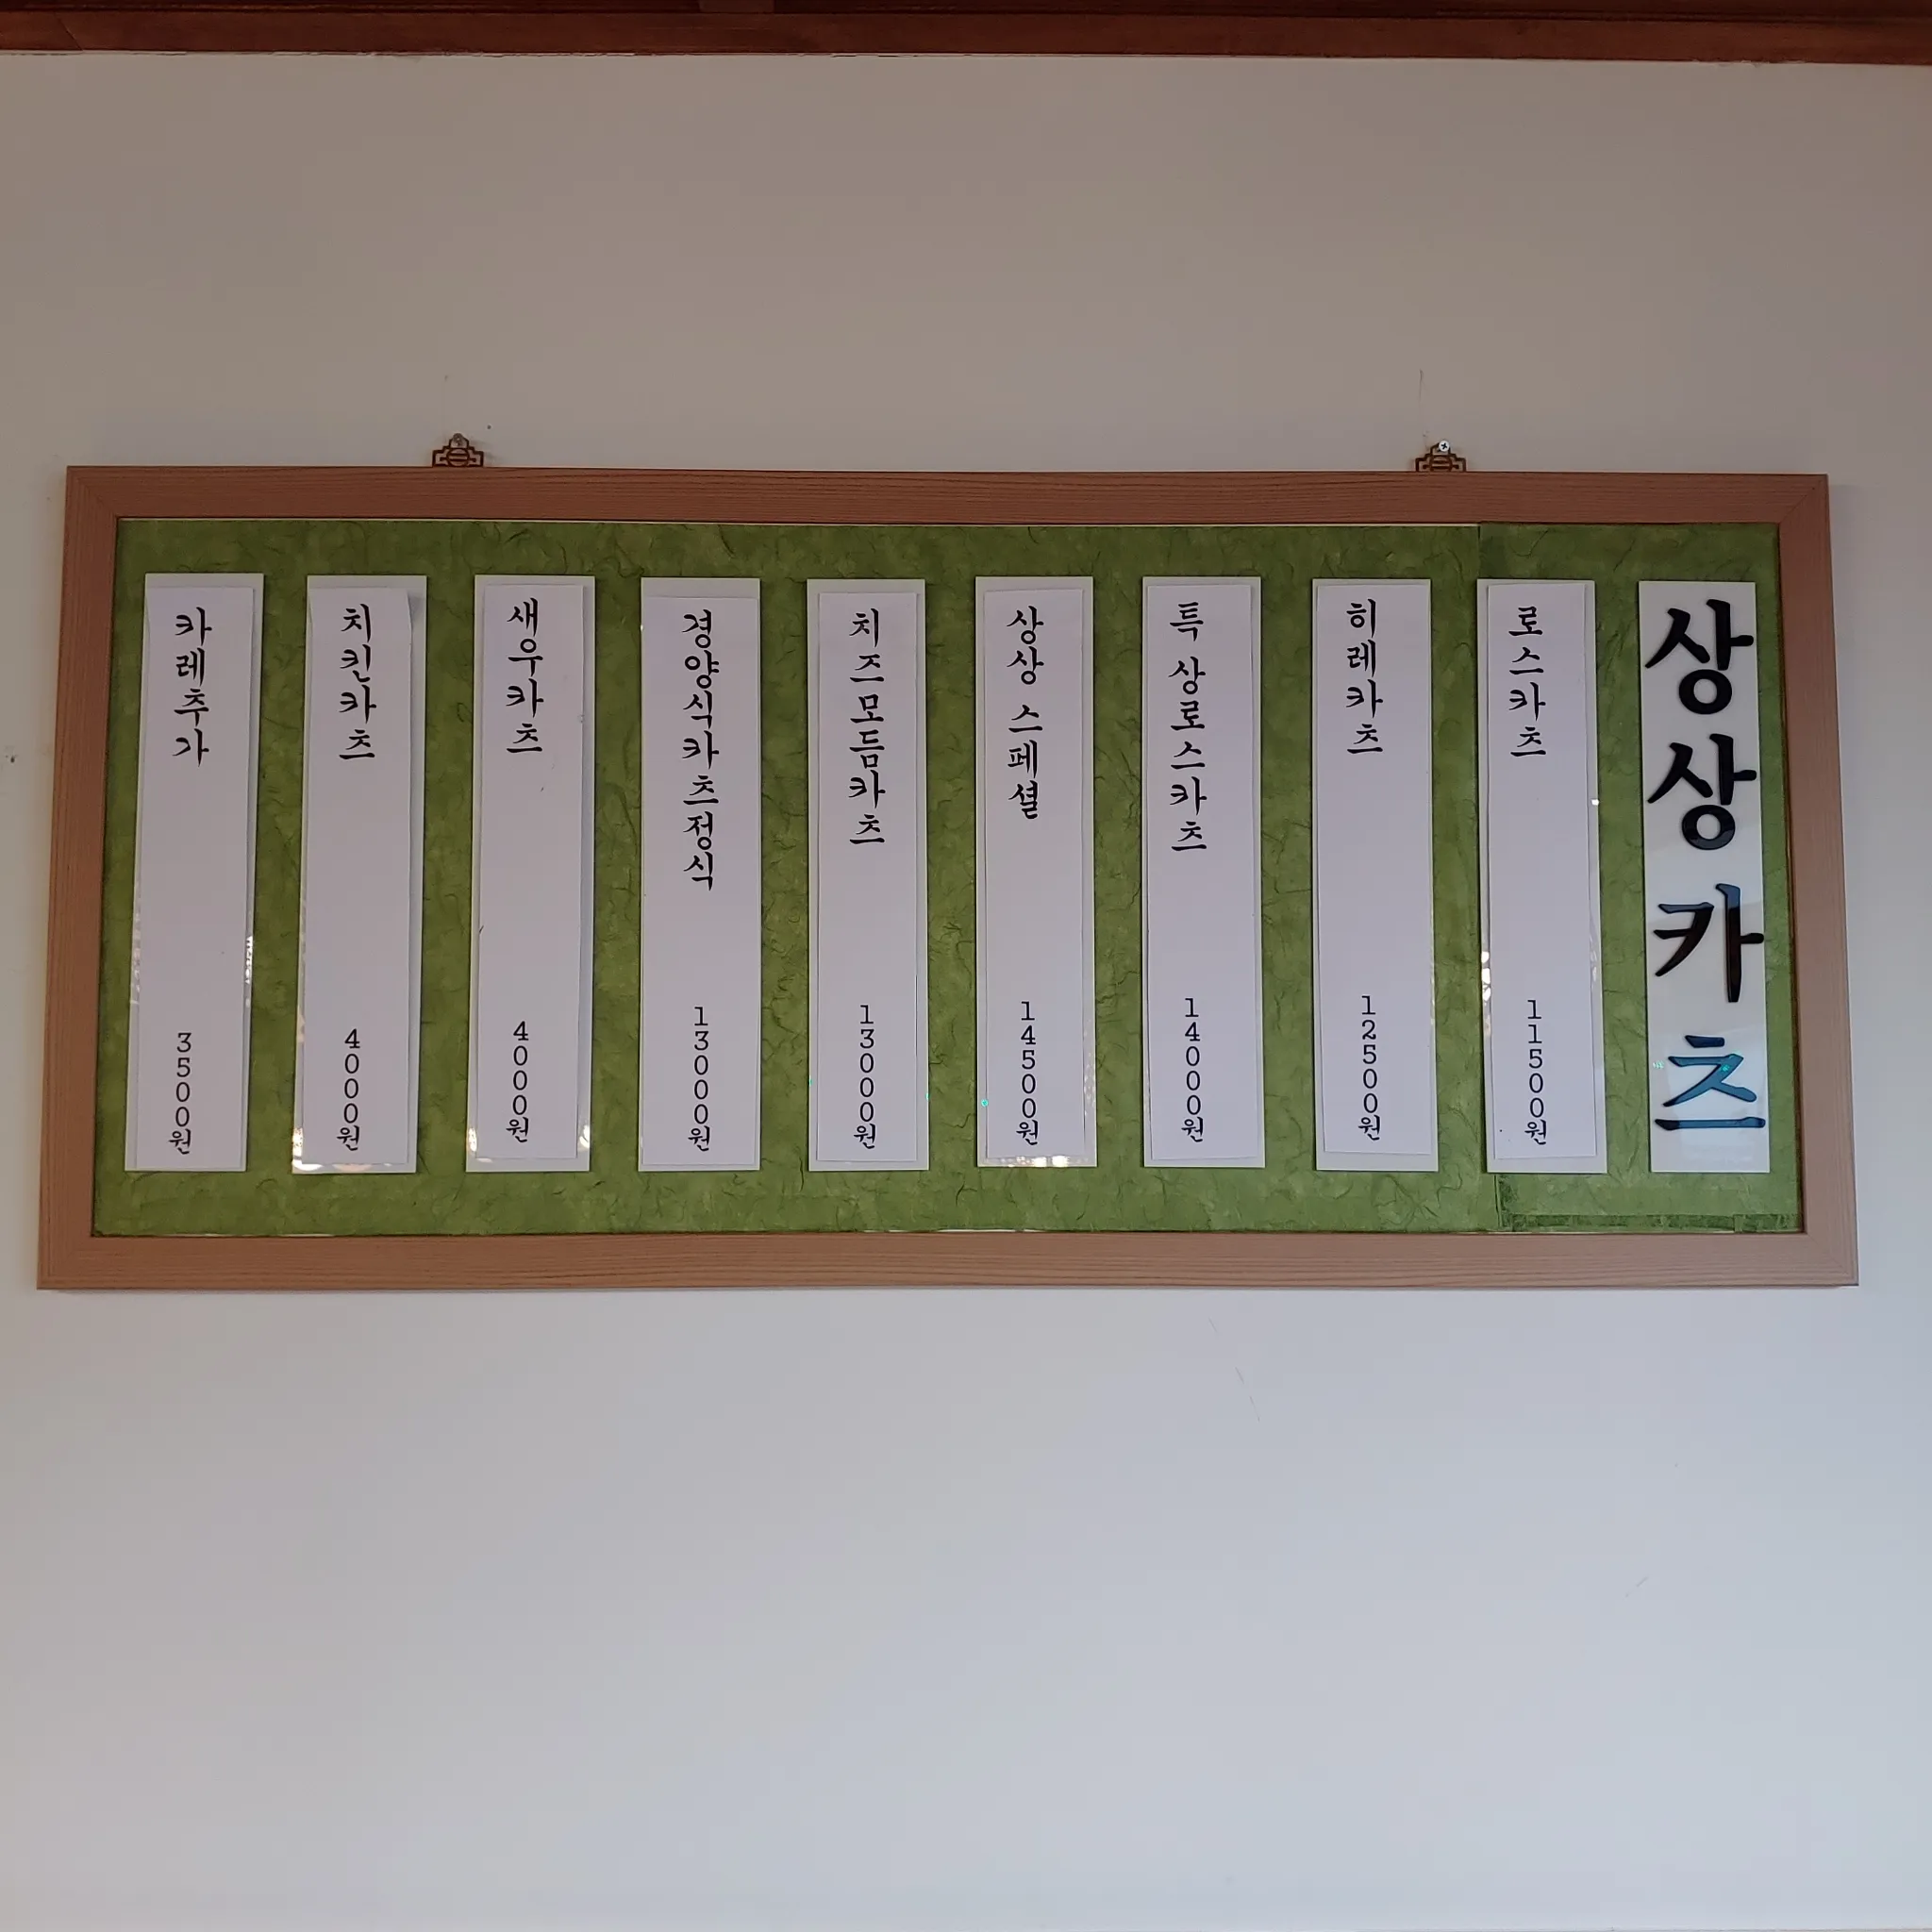 상상카츠
로스카츠 11500원
히레카츠 12500원
특 상로스카츠 14000원
상상 스페셜 14500원
치즈모듬카츠 13000원
경양식카츠정식 13000원
새우카츠 4000원
치킨카츠 4000원
카레추가 3500원